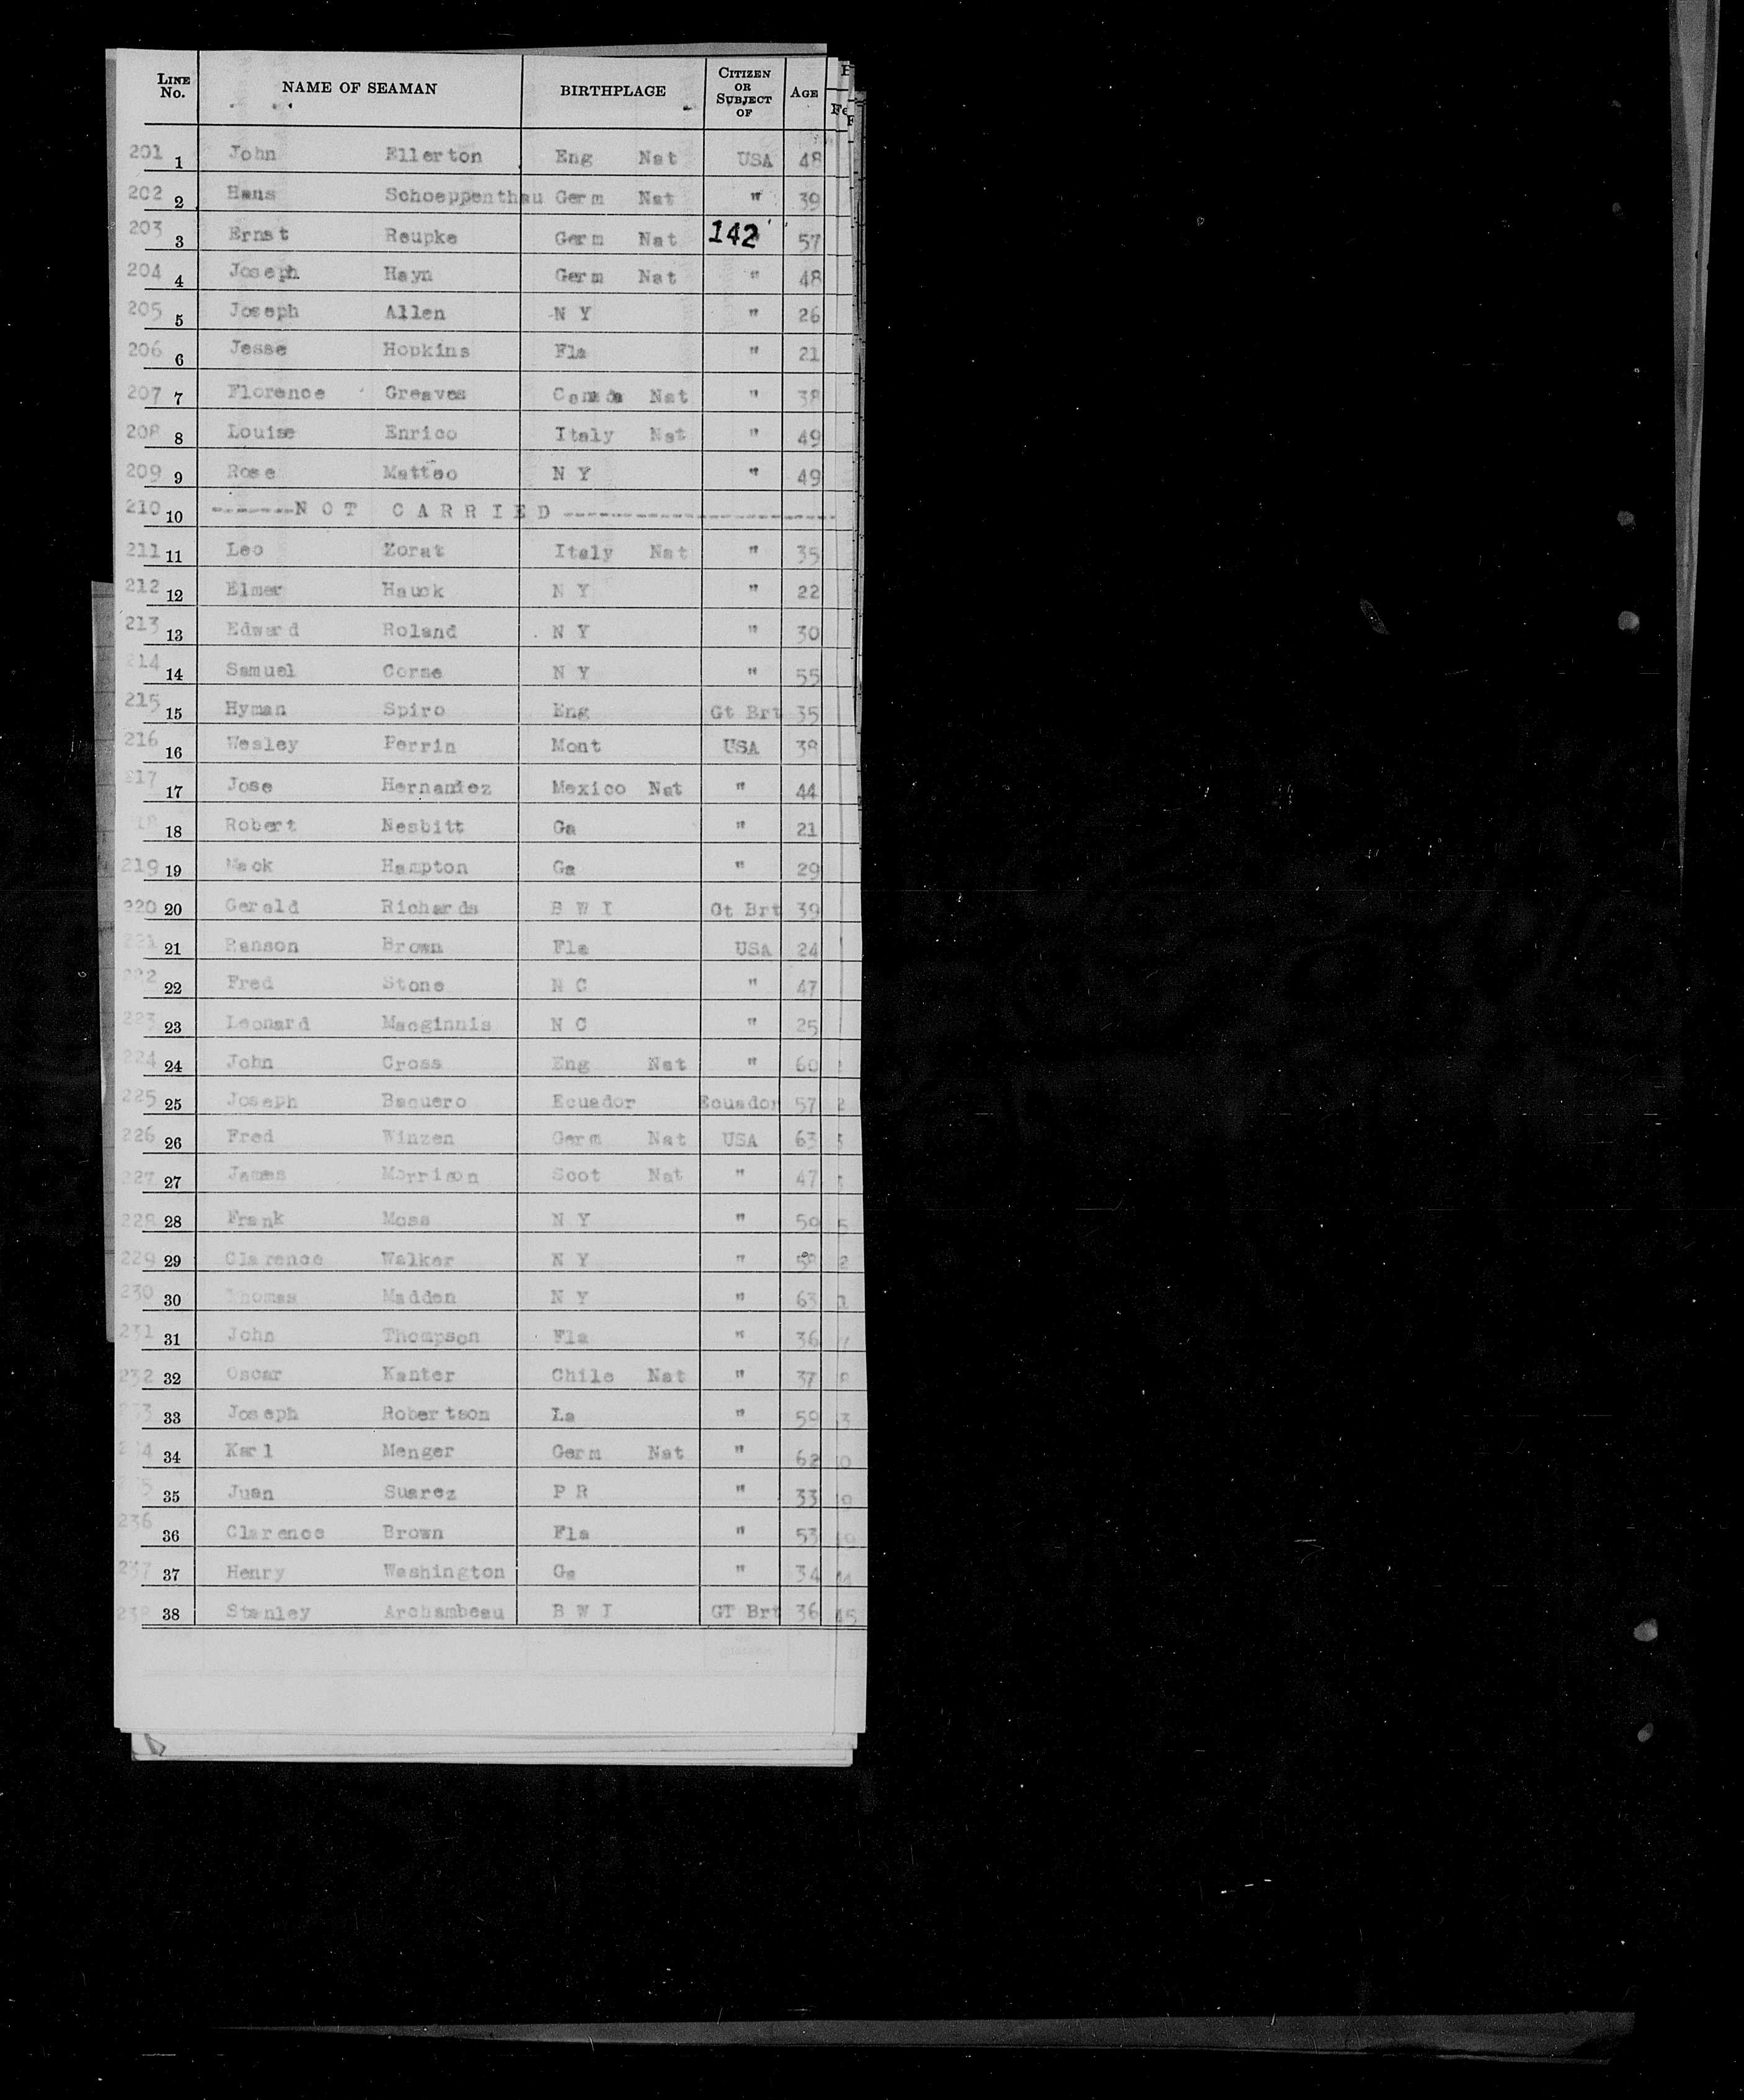 LINE No. NAME OF SEAMAN BIRTHPLAGE CITIZEN OR SUBJECT OF AGE
201 1 John Ellerton Eng Nat USA 48
202 2 Hans Schoeppenthau Germ Nat " 39
203 3 Ernst Reupke Germ Nat 142 57
204 4 Joseph Hayn Germ Nat " 48
205 5 Joseph Allen N Y " 26
206 6 Jesse Hopkins Fla " 21
207 7 Florence Greaves Canada Nat " 38
208 8 Louise Enrico Italy Nat " 49
209 9 Rose Matteo N Y " 49
210 10 -------N O T C A R R I E D -----------------------
211 11 Leo Zorat Italy Nat " 35
212 12 Elmer Hauck N Y " 22
213 13 Edward Roland N Y " 30
214 14 Samuel Corse N Y " 55
215 15 Hyman Spiro Eng Gt Brt 35
216 16 Wesley Perrin Mont USA 38
217 17 Jose Hernandez Mexico Nat " 44
18 Robert Nesbitt Ga " 21
219 19 Mack Hampton Ga " 29
220 20 Gerald Richards B W I Gt Brt 39
221 21 Ranson Brown Fla USA 24
222 22 Fred Stone N C " 47
223 23 Leonard Macginnis N C " 25
224 24 John Cross Eng Nat " 60
225 25 Joseph Baquero Ecuador Ecuador 57
226 26 Fred Winzen Germ Nat USA 63
227 27 James Morrison Scot Nat " 47
228 28 Frank Moss N Y " 50
229 29 Clarence Walker N Y "
230 30 Thomas Madden N Y " 63
231 31 John Thompson Fla " 36
232 32 Oscar Kanter Chile Nat " 37
33 Joseph Robertson La " 50
34 Karl Menger Germ Nat " 62
35 Juan Suarez P R " 33
236 36 Clarence Brown Fla " 53
237 37 Henry Washington Ga " 34
238 38 Stanley Archambeau B W I GT Brt 36